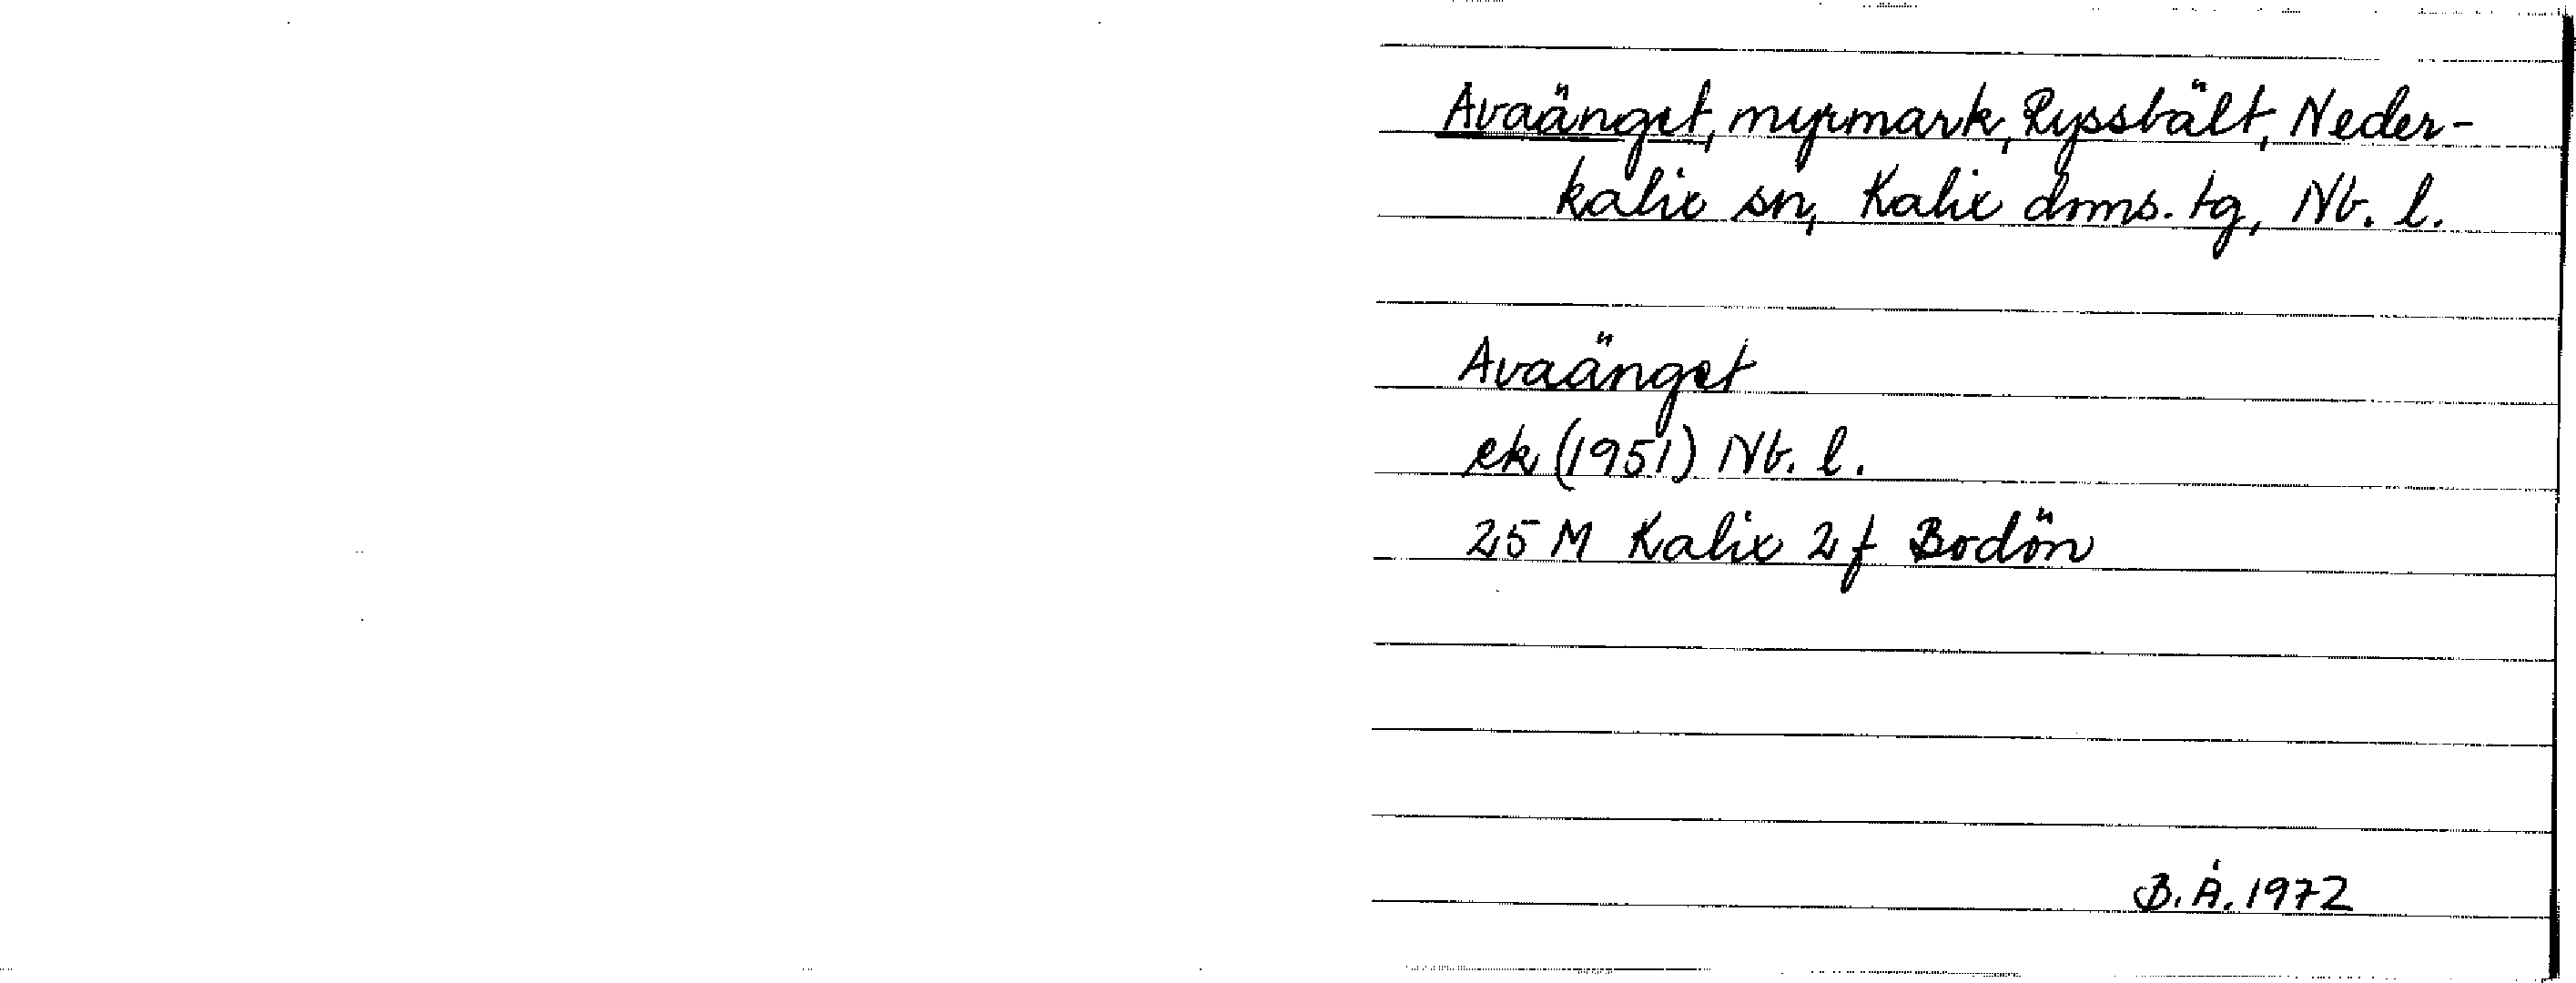 Avaänget, myrmark, Ryssbält, Neder-
kalix sn, Kalix doms. tg, Nb. l.
Avaänget
ek (1951) Nb. l.
25 M Kalix 2 f Bodön
B. Å. 1972